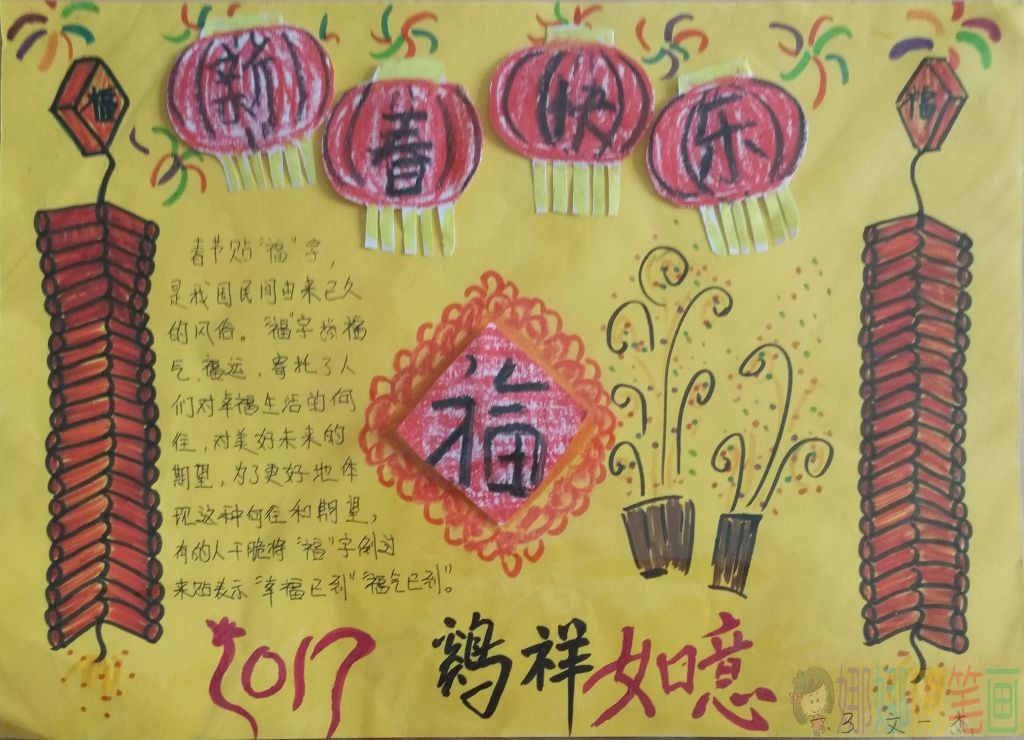 新善快乐
福
春节贴“福”字，
是我国民间由来已久
的风俗。“福”字指福
气、福运，寄托了人
们对幸福生活的向
往，对美好未来的
期望，为了更好地体
现这种向往和期望，
有的人干脆将“福”字倒过
来贴表示“幸福已到”“福气已到”。
福
2017 鸡祥如意
3 文一杰
娜娜 笔画